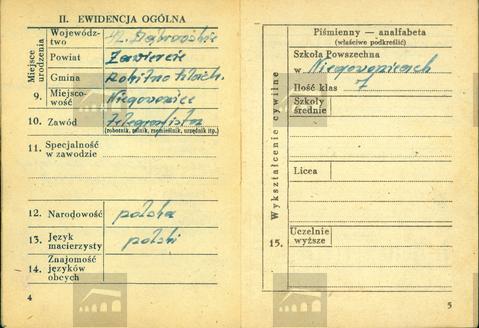 II. EWIDENCJA OGÓLNA
Miejsce urodzenia
Wojewódz-
two
Powiat Zawiercie
Gmina
9. Miejsco-
wość Niegowonice
10. Zawód telegrafista
(robotnik, rolnik, rzemieślnik, urzędnik itp.)
11. Specjalność
w zawodzie
12. Narodowość polska
13. Język
macierzysty polski
14. Znajomość
języków
obcych
4
Piśmienny — analfabeta
(właściwe podkreślić)
15. Wykształcenie cywilne
Szkoła Powszechna
w Niegowonicach
Ilość klas 7
Szkoły
średnie
Licea
Uczelnie
wyższe
5